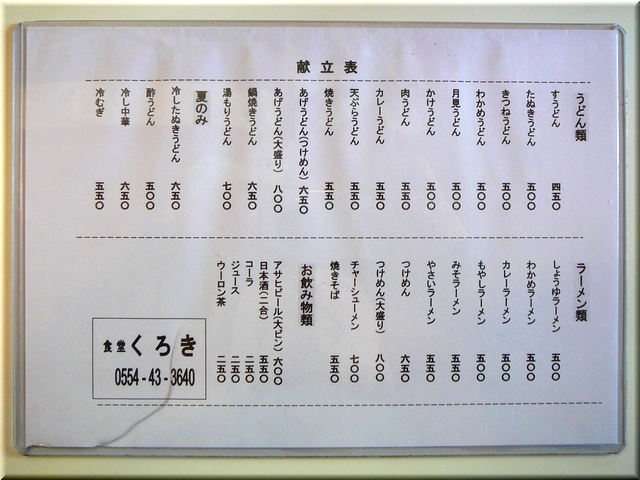 献立表
うどん類
すうどん 四五〇
たぬきうどん 五〇〇
きつねうどん 五〇〇
わかめうどん 五〇〇
月見うどん 五〇〇
かけうどん 五〇〇
肉うどん 五五〇
カレーうどん 五五〇
天ぷらうどん 五五〇
焼きうどん 五五〇
あげうどん(つけめん) 六五〇
あげうどん(大盛り) 八〇〇
鍋焼きうどん 六五〇
湯もりうどん 七〇〇
夏のみ
冷したぬきうどん 六五〇
酢うどん 五〇〇
冷し中華 六五〇
冷むぎ 五五〇
ラーメン類
しょうゆラーメン 五〇〇
わかめラーメン 五〇〇
カレーラーメン 五〇〇
もやしラーメン 五〇〇
みそラーメン 五五〇
やさいラーメン 五五〇
つけめん 六五〇
つけめん(大盛り) 八〇〇
チャーシューメン 七〇〇
焼きそば 五五〇
お飲み物類
アサヒビール(大ビン) 六〇〇
日本酒(二合) 五五〇
コーラ 二五〇
ジュース 二五〇
ウーロン茶 二五〇
食堂 くろき
0554-43-3640